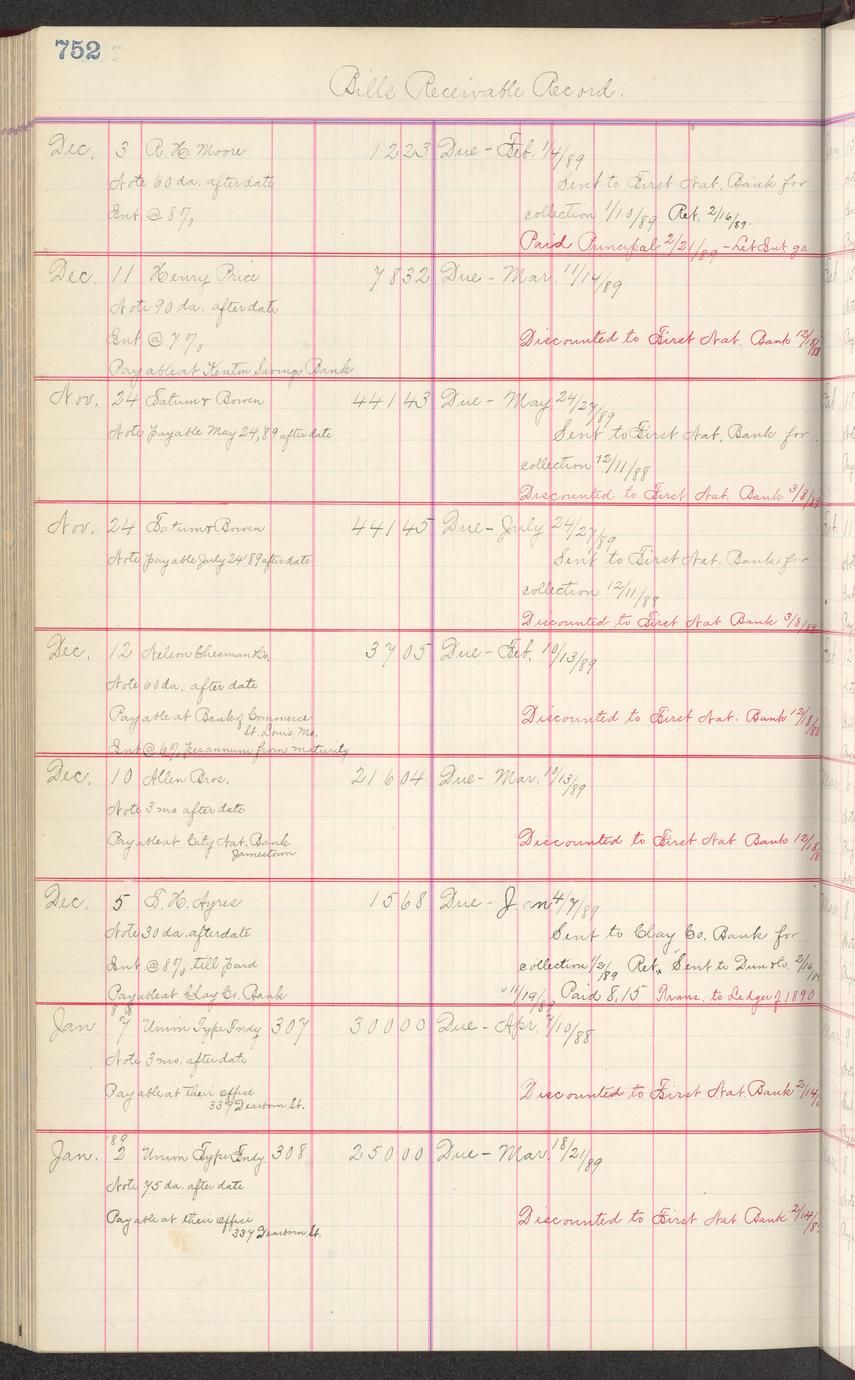 752
Bills Receivable Record.
Dec. 3 R. H. Moore 12 23 Due - Feb. 1/4/89
Note 60 da. after date Sent to First Nat. Bank for
Int @ 8% collection 1/10/89 Ret. 2/16/89.
Paid Principal 2/21/89 - Let Int go.
Dec. 11 Henry Price 78 32 Due - Mar. 11/14/89
Note 90 da. after date
Int @ 7% Discounted to First Nat. Bank 12/18/88
Payable at Kenton Savings Bank
Nov. 24 Tatum & Bowen 441 43 Due - May 24/27/89
Note payable May 24, 89 after date Sent to First Nat. Bank for
collection 12/11/88
Discounted to First Nat. Bank 3/8/89
Nov. 24 Tatum & Bowen 441 45 Due - July 24/27/89
Note payable July 24' 89 after date Sent to First Nat. Bank for
collection 12/11/88
Discounted to First Nat Bank 3/8/89
Dec. 12 Nelson Chesman & Co. 37 05 Due - Feb. 10/13/89
Note 60 da. after date
Payable at Bank of Commerce Discounted to First Nat. Bank 12/18/88
St. Louis Mo.
Int @ 6% per annum from maturity
Dec. 10 Allen Bros. 216 04 Due - Mar. 10/13/89
Note 3 mo after date
Payable at City Nat. Bank Discounted to First Nat Bank 12/18/8
Jamestown
Dec. 5 F. H. Ayres 15 68 Due - Jan 4/7/89
Note 30 da. after date Sent to Clay Co. Bank for
Int @ 8% till paid collection 1/2/89 Ret. Sent to Dun & Co. 2/16/89
Payable at Clay Co. Bank 11/19/89 Paid 8.15 Trans. to Ledger of 1890
Jan. 7 Union Type Fndy 307 300 00 Due - Apr. 7/10/88
Note 3 mo. after date
Payable at their office Discounted to First Nat. Bank 2/14/
337 Dearborn St.
'89
Jan. 2 Union Type Fndy. 308 250 00 Due - Mar. 18/21/89
Note 75 da. after date
Payable at their office Discounted to First Nat Bank 2/14/8
337 Dearborn St.